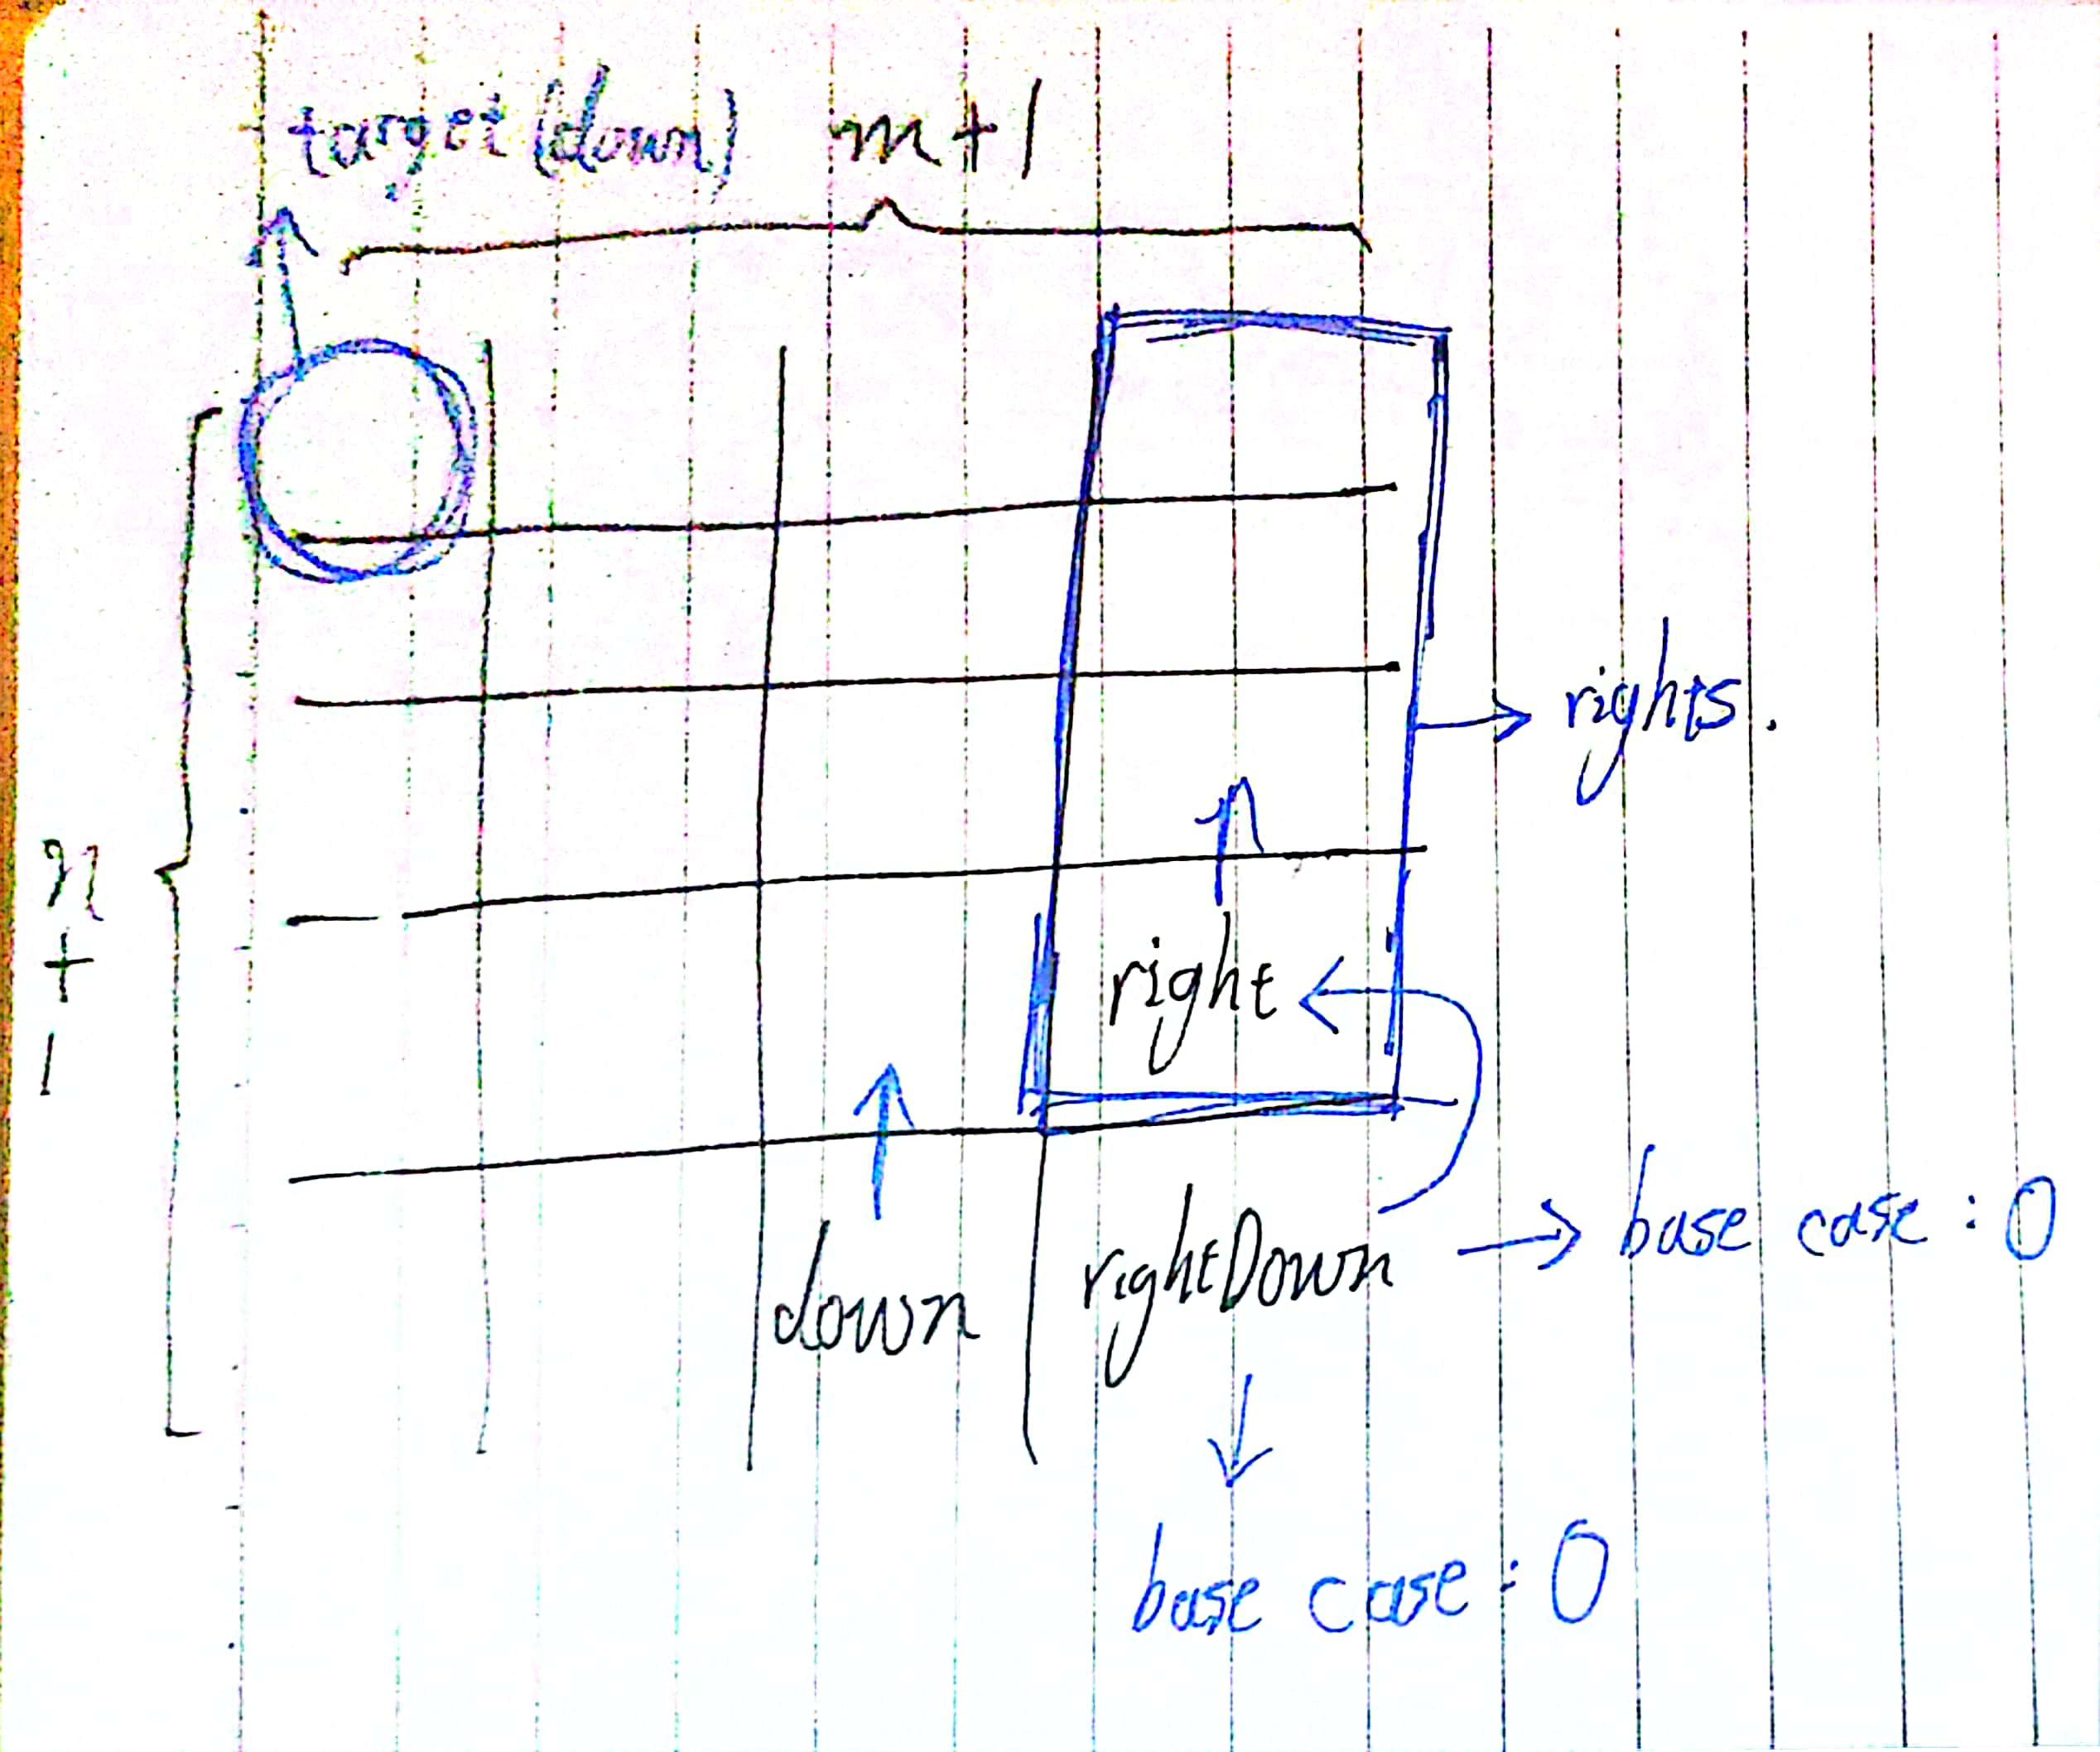 target(down) m+1
rights.
n+1
right
down rightDown base case : 0
base case : 0